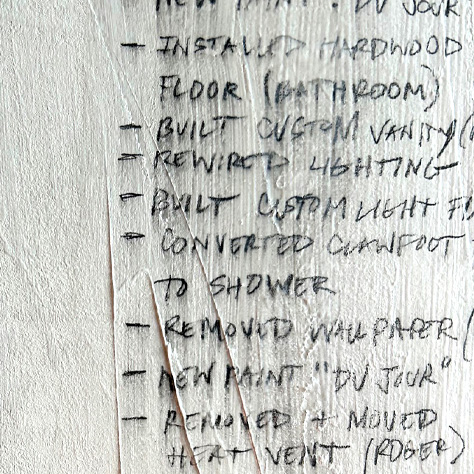 NEW PAINT "DV JOUR
- INSTALLED HARDWOOD
FLOOR (BATHROOM)
- BUILT CUSTOM VANITY (
- REWIRED LIGHTING
- BUILT CUSTOM LIGHT
- CONVERTED CLAWFOOT
TO SHOWER
- REMOVED WALLPAPER (
- NEW PAINT "DV JOUR"
- REMOVED + MOVED
HEAT VENT (ROGER)